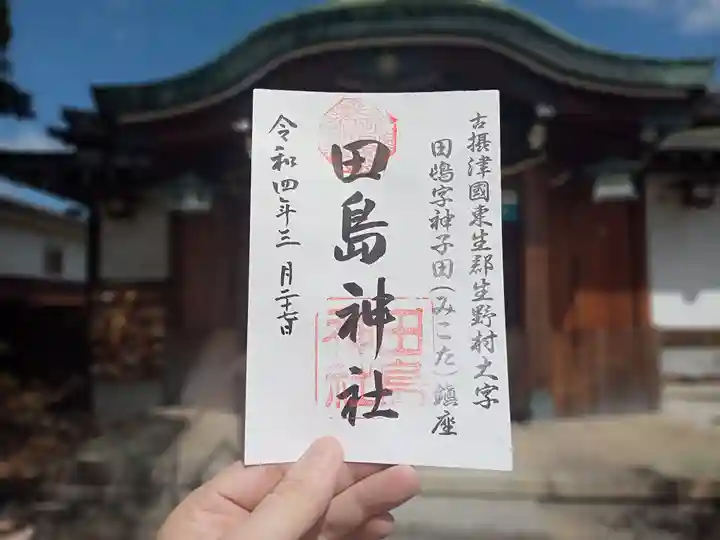 古摂津國東生郡生野村大字
田嶋字神子田(みこた)鎮座
田島神社
令和四年三月二十七日